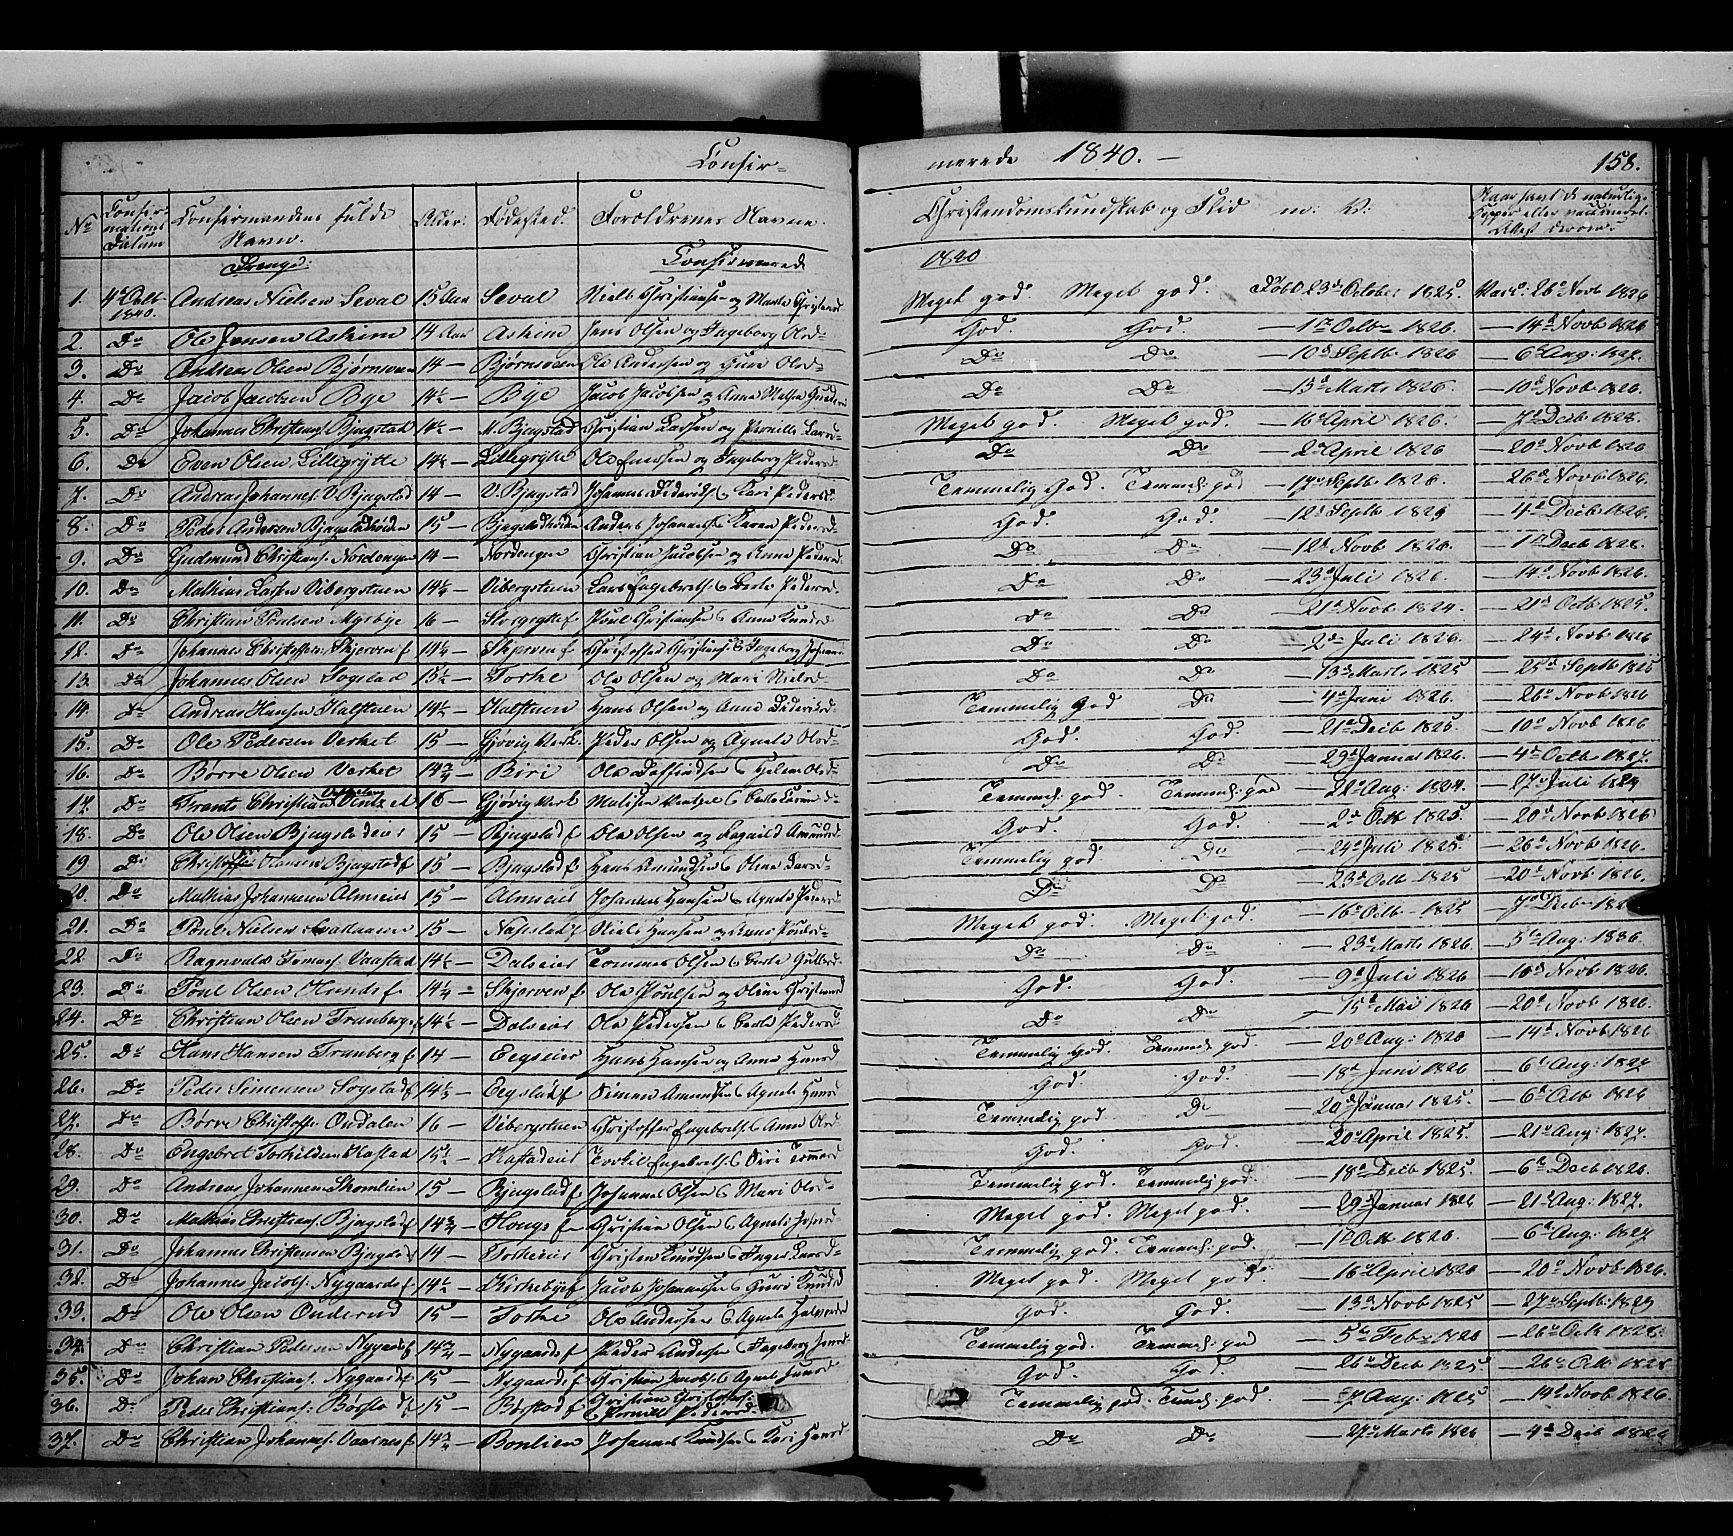 Confir= merede 1840. — 158.
No Confirmations Datum Confirmandens fulde Navn. Alder. Fødested. Forældrenes Navne. Christendomskundskab og Flid m: V: Naar havt de naturlige Kopper eller vaccineret
Drenge: Confirmerede 1840
1. 4de Octb 1840. Andreas Nielsen Seval 15 Aar Seval Niels Christiansen og Marte Christensd Meget god. Meget god. Født 23de October 1825. Vacc. 26de Novb 1826
2. Do Ole Jensen Askim 14 Aar Askim Jens Olsen og Ingeborg Olsd— God. God. — 1de Octb 1826. — 14de Novb 1826
3. Do Andreas Olsen Bjørnsveen 14 — Bjørnsveen Ole Andersen og Olsd— Do Do — 10de Septb 1826 — 6de Aug: 1827.
4. Do Jacob Jacobsen Bye 14½ — Bye Jacob Jacobsen og Anne Do Do — 13de Marts 1826. — 10de Novb 1826.
5. Do Johannes Christians: Bjugstad 14½ — Bjugstad Christian Larsen og Pernille Larsd— Meget god. Meget god. — 16de April 1826. — 7de Decb 1828.
6. Do Even Olsen Lillegrytte 14½ — Lillegrytte Ole Evensen og Ingeborg Pedersd— Do Do — 2de April 1826 — 20de Novb 1826
7. Do Andreas Johannes: V. Bjugstad 14 — V. Bjugstad Johannes og Kari Pedersd. Temmelig God. Temmel: god — 17de Septb 1826. — 26de Novb 1826.
8. Do Peder Andersen Bjugstadheiden 15 — Bjugstadheiden Anders Johannes: og Karen Pedersd— God. God. — 12de Septb 1825 — 4de Decb 1826.
9. Do Gudmund Christians: Nordengen 14 — Nordengen Christian Jacobsen og Anne Pedersd— Do Do — 12de Novb 1826. — 1de Decb 1828.
10. Do Mathias Larsen Vibergstuen 14½ — Vibergstuen Lars Engebrets: og Berte Pedersd— Do Do — 23de Juli 1826. — 14de Novb 1826.
11. Do Christian Poulsen Myrbye 16 — Storgryttef Poul Christiansen og Anne Knudsd Do Do — 21de Novb 1824. — 21de Octb 1825.
12. Do Johannes Christoffers: Skjervenf 14½ — Skjervenf Christoffer Christians: og Ingeborg Johannesd Do Do — 2de Juli 1826. — 24de Novb 1826
13. Do Johannes Olsen Sogstad 15½ — Toske Ole Olsen og Mari Nielsd— Do Do — 13de Marts 1825 — 25de Septb 1825
14. Do Andreas Hansen Kalstuen 14½ — Kalstuen Hans Olsen og Anne Temmelig God Do — 4de Juni 1826. — 26de Novb 1826
15. Do Ole Pedersen Verket 15 — Gjøvig Verk. Peder Olsen og Agnete Olsd— God. God. — 21de Decb 1825. — 10de Novb 1826
16. Do Børre Olsen Verket 14¾ — Biri Ole og Helene Olsd— Do Do — 29de Januar 1826. — 4de Octb 1827.
17. Do Frants Christian Ventzel 16 — Gjøvig Verk Ventzel og Berte Larsd— Temmel: god. Temmel: god — 21de Aug: 1824. — 27de Juli 1829
18. Do Ole Olsen Bjugstadeier 15 — Bjugstadf. Ole Olsen og Ragnild Amundsd— God. God. — 2de Octb 1825. — 20de Novb 1826
19 Do Christoffer Hansen Bjugstadf 15 — Bjugstadf. Hans Amundsen og Oline Larsd— Temmelig god Do — 24de Juli 1825. — 26de Novb 1826.
20. Do Mathias Johannesen Almseier 15 — Almseier Johannes Hansen og Agnete Pedersd Do Do — 23de Octb 1825 — 20de Novb 1826.
21. Do Poul Nielsen 15 — Niels Hansen og Anne Pedersd— Meget god. Meget god. — 16de Octb 1825 — 7de Decb
22. Do Ragnvald Tommes: Vaastad 14½ — Dalseier Tommes Olsen og Berte Gulbrd— Do Do — 23de Marts 1826. — 5de Aug: 1836.
23. Do Poul Olsen Hundsf 14¼ — Skjervenf Ole Poulsen og Oline Christensd God. God. — 9de Juli 1826 — 10de Novb 1826.
24. Do Christian Olsen Tranbergsf 14½ — Dalseier Ole Pedersen og Berte Pedersd— Do Do — 15de Mai 1826 — 20de Novb 1826.
25. Do Hans Hansen Tranbergf 14 — Eegseier Hans Hansen og Anne Hansd Temmelig God. Temmel: god. — 20de Aug: 1826 — 14de Novb 1826
26. Do Peder Simensen Sogstadf 14½ — Eegstadf Simen Amundsen og Agnete Hansd God. God. — 18de Juni 1826 — 6de Aug: 1827
27. Do Børre Christoffs: Ondalen 16 — Vibergstuen Christoffer Engebrets: og Anne Olsd— Temmelig god Do — 20de Januar 1825. — 6de Octb 1826
28. Do Engebret Torkildsen Kastad 15½ — Kastadeier Torkel Engebrets: og Siri Tommesd God. God. — 20de April 1825. — 21de Aug: 1827.
29. Do Andreas Johannesen Skomlien 15 — Bjugstadf Johannes Olsen og Mari Olsd— Temmelig god. Temmelig god. — 18de Decb 1825 — 6de Decb 1826.
30. Do Mathias Christians: Bjugstadf 14¾ — Christian Olsen og Agnete Meget god. Meget god. — 29de Januar 1826 — 21de Aug: 1827.
31. Do Johannes Christensen 14 — Toskeeier Christen Knudsen og Inger Larsd— Temmelig god. Temmel: god. — 1de Octb 1826. — 6de Aug: 1827
32. Do Johannes Jacobs: Nygaardsf 14½ — Kirkebyef Jacob Johannesen og Guri Knudsd Meget god. Meget god. — 16de April 1826 — 20de Novb 1826.
33. Do Ole Olsen Onderud 15 — Toske Ole Andersen og Agnete Halvorsd God God. — 13de Novb 1825 — 27de Septb: 1829
34. Do Christian Pedersen Nygaardsf 14¾ — Nygaardsf. Peder Andersen og Ingeborg Temmelig god Temmel: god — 5de Feb 1826 — 26de Octb 1828.
35. Do Johan Christians: Nygaardsf 15 — Nygaardsf. Christian Jacobs: og Agnete Hansd God. God. — 26de Decb 1825 — 26de Octb 1828
36. Do Peder Christians: Børstadf 15 — Børstadf Christian Christoffers: og Pernille Pedersd— Temmelig god. Temml god. — 27de Aug: 1825 — 14de Novb 1826.
37. Do Christian Johannes: 14¾ — Bonlien Johannes Knudsen og Kari Hansd Do Do — 27de Marts 1826 — 4de Decb 1826